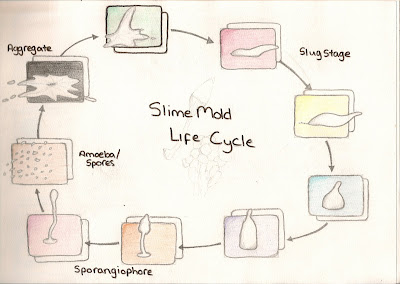 Aggregate
Slug Stage
Slime Mold
Life Cycle
Amoeba/
Spores
Sporangiophore